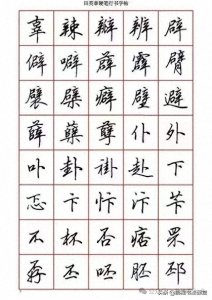 田英章硬笔行书字帖
辜 辣 辩 辨 辟
僻 噼 薜 霹 臂
襞 擘 癖 壁 避
薜 蘖 孽 仆 外
卟 卦 褂 赴 下
忑 卞 忭 汴 苄
不 杯 否 痞 罘
孬 丕 呸 胚 邳